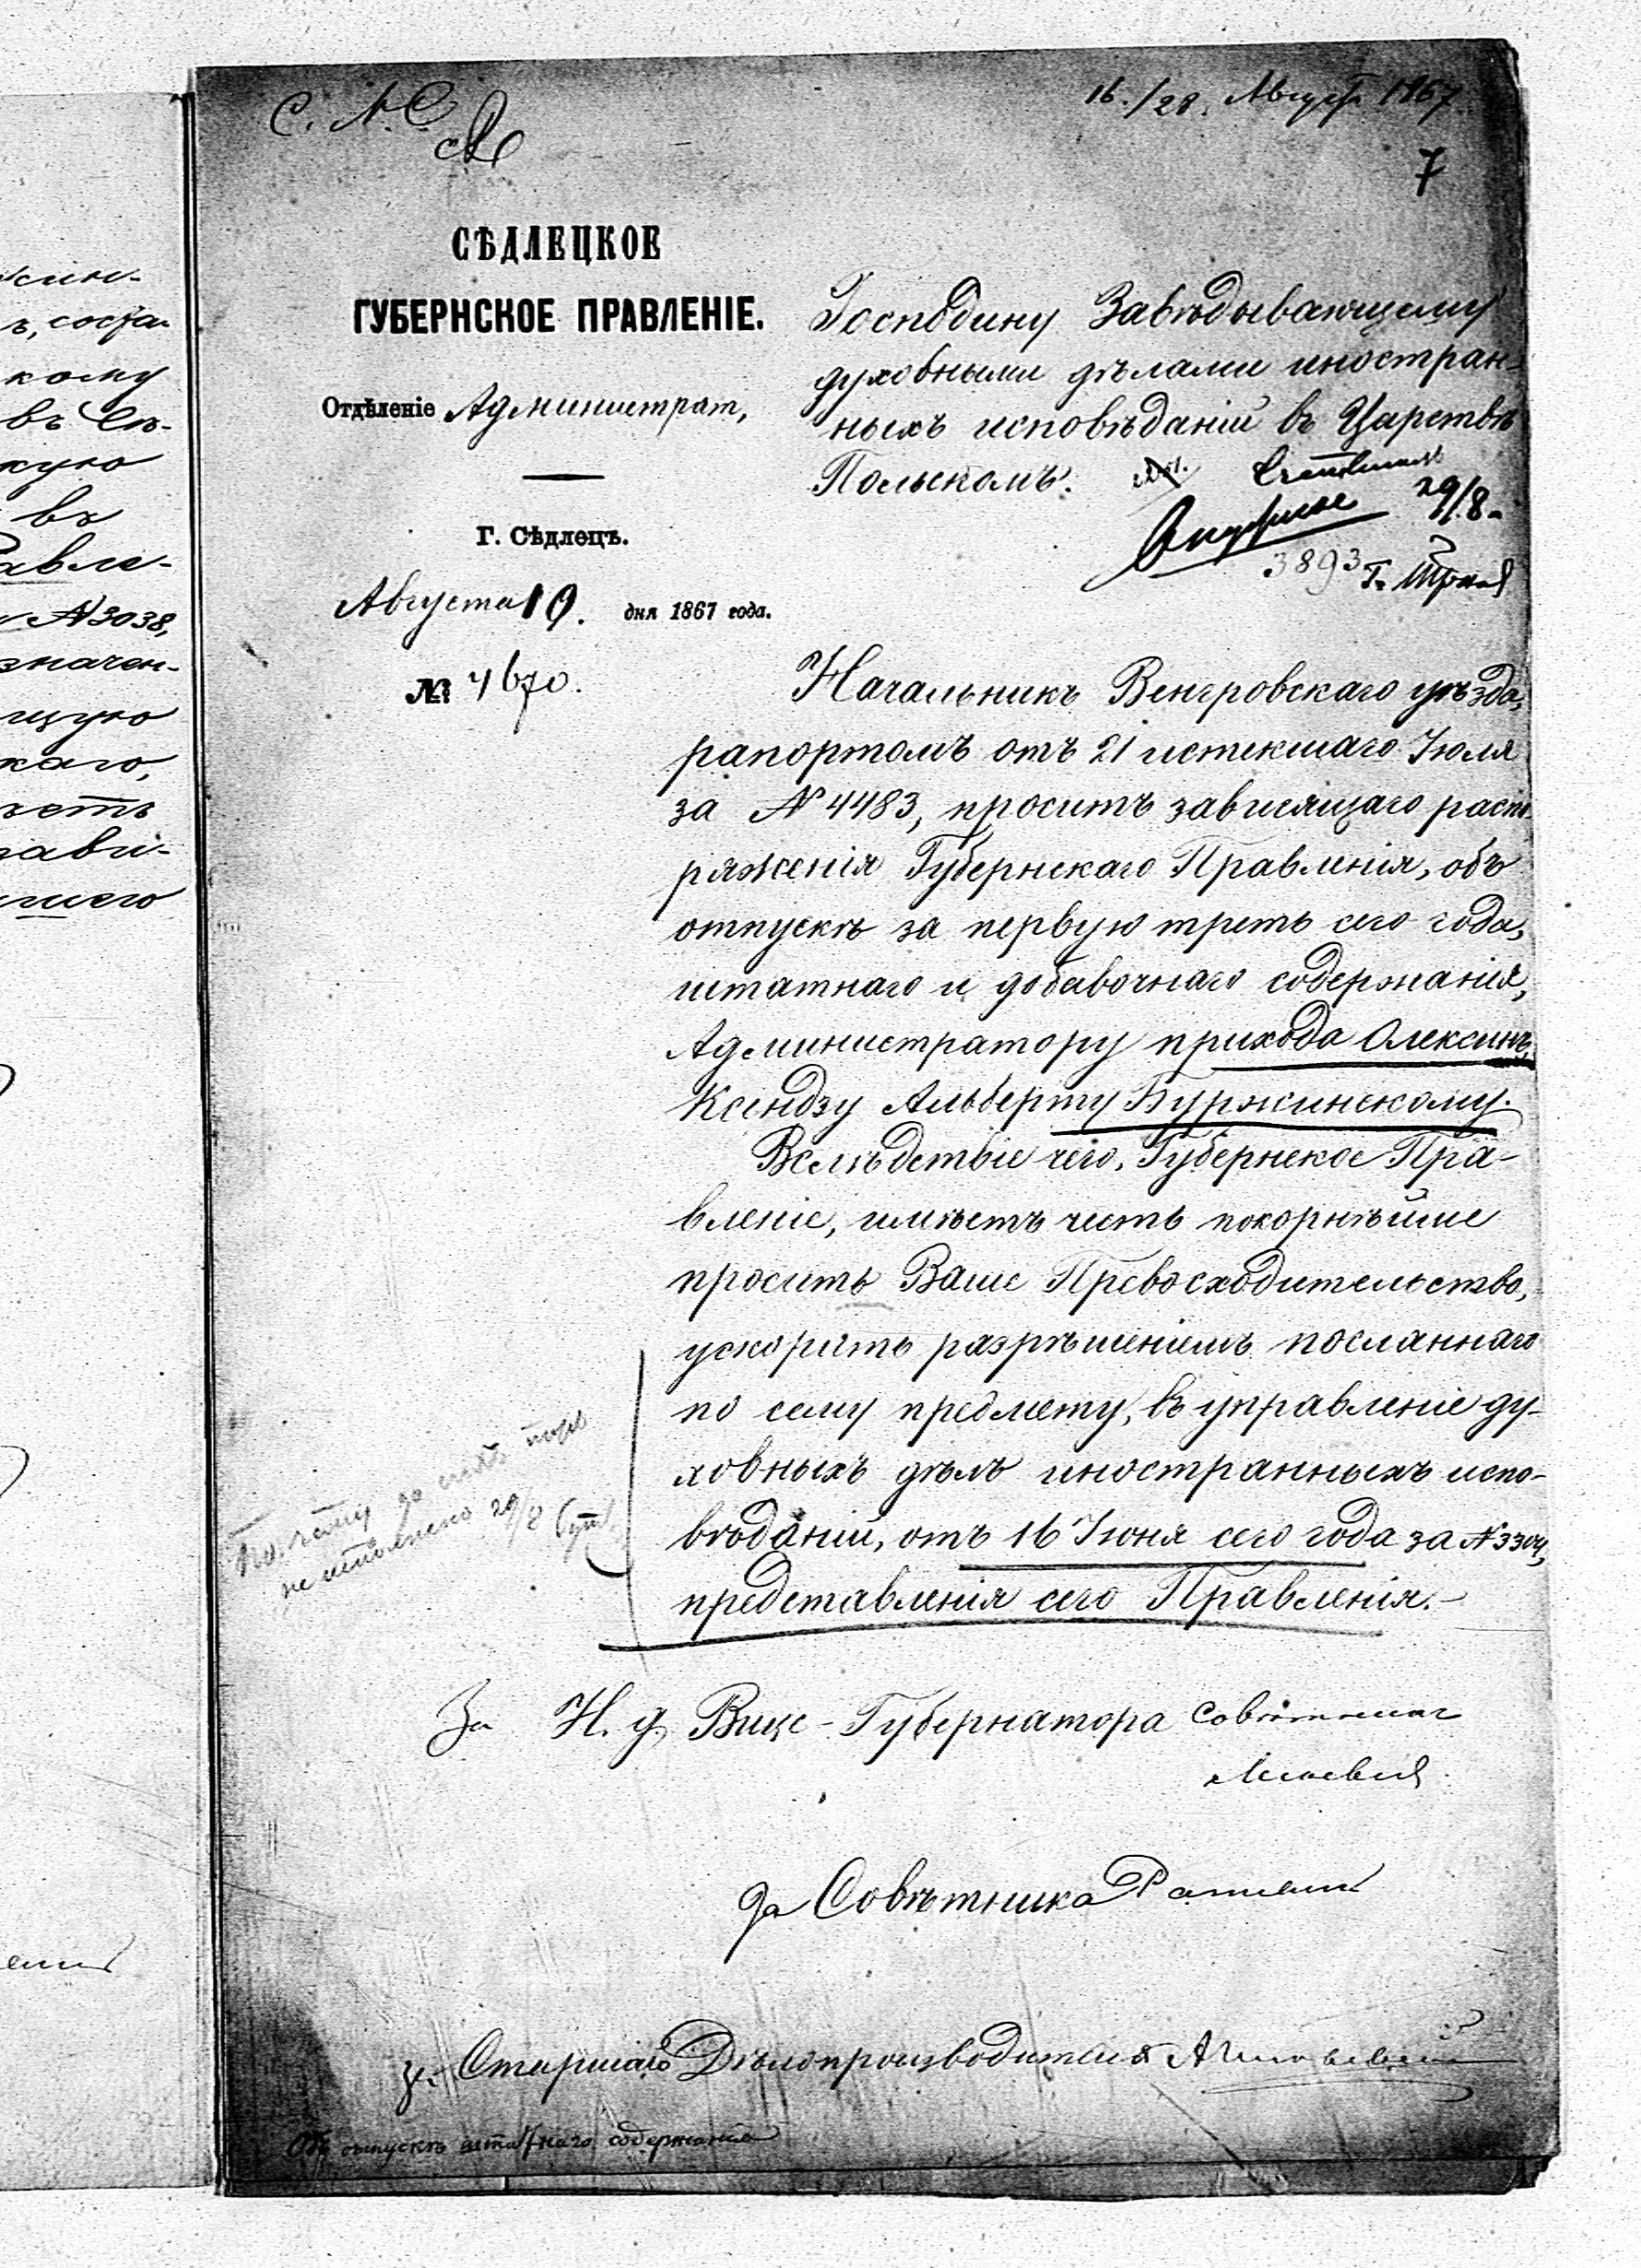 син
ъ, соста
кому
въ Сѣ-
кую
въ
авле-
№ 3038,
значен-
щую
каго,
шего
С. А. С.
16./28. Августа 1867
7
СѢДЛЕЦКОЕ
ГУБЕРНСКОЕ ПРАВЛЕНІЕ.
Отдѣленіе Администрат,
Г. Сѣдлецъ.
Августа 10. дня 1867 года.
№ 4670.
Господину Завѣдывающему
духовными дѣлами иностран-
ныхъ исповѣданій въ Царствѣ
Польскомъ.
29/8.
3893
Начальникъ Венгровскаго уѣзда,
рапортомъ отъ 21 истекшаго Іюля
за № 4483, проситъ зависящаго распо-
ряженія Губернскаго Правленія, объ
отпускѣ за первую треть сего года,
штатнаго и добавочнаго содержанія,
Администратору прихода Олексинъ,
Ксендзу Альберту Буржинскому.
Вслѣдствіе чего, Губернское Пра-
вленіе, имѣетъ честь покорнѣйше
просить Ваше Превосходительство,
ускорить разрѣшеніемъ посланнаго
по сему предмету, въ управленіе ду-
ховныхъ дѣлъ иностранныхъ испо-
вѣданій, отъ 16 Іюня сего года за № 3304,
представленія сего Правленія.-
Почему до сихъ поръ
не исполнено 29/8
За Н. д. Вице-Губернатора Совѣтникъ
За Совѣтника
Старшаго Дѣлопроизводителя
Объ отпускѣ штатнаго содержанія